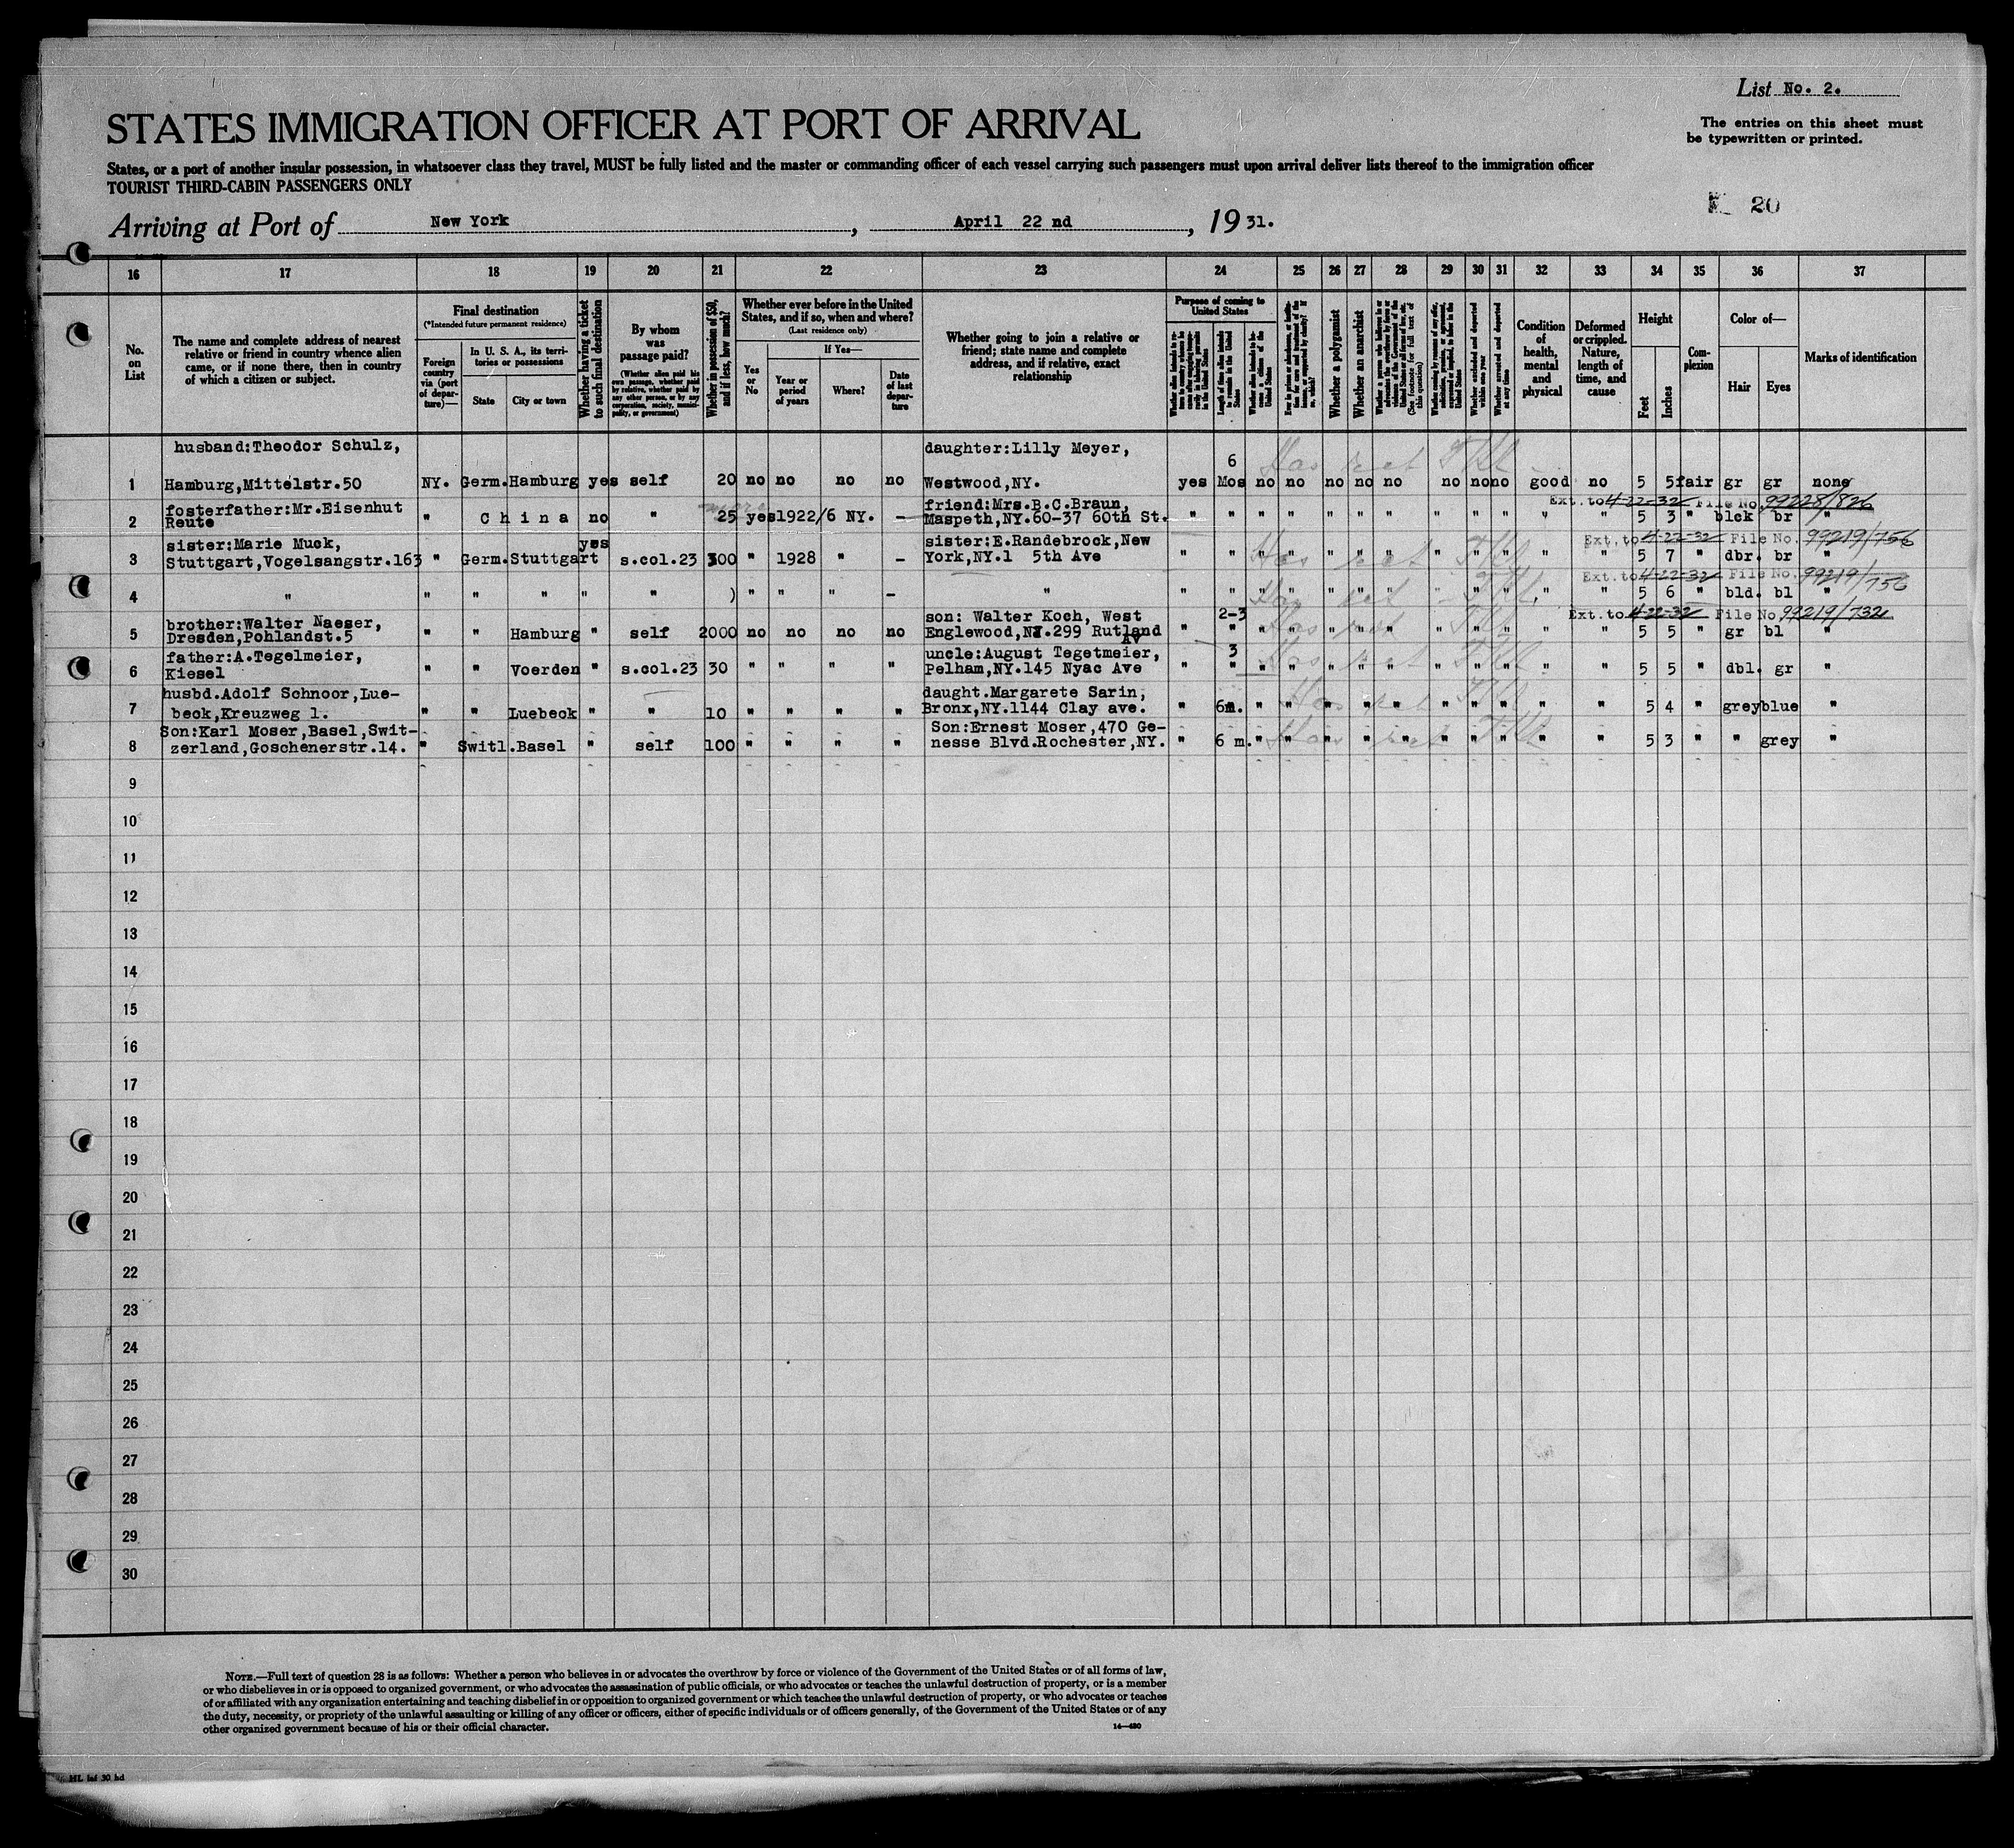 List No. 2.
STATES IMMIGRATION OFFICER AT PORT OF ARRIVAL
The entries on this sheet must
be typewritten or printed.
States, or a port of another insular possession, in whatsoever class they travel, MUST be fully listed and the master or commanding officer of each vessel carrying such passengers must upon arrival deliver lists thereof to the immigration officer
TOURIST THIRD-CABIN PASSENGERS ONLY
20
Arriving at Port of New York, April 22 nd, 19 31.
16 17 18 19 20 21 22 23 24 25 26 27 28 29 30 31 32 33 34 35 36 37
No. on List
The name and complete address of nearest
relative or friend in country whence alien
came, or if none there, then in country
of which a citizen or subject.
Final destination
(*Intended future permanent residence)
Foreign country via (port of departure)—
In U. S. A., its territories or possessions
State
City or town
Whether having a ticket to such final destination
By whom was passage paid?
(Whether alien paid his own passage, whether paid by relative, whether paid by any other person, or by any corporation, society, municipality, or government)
Whether in possession of $50, and if less, how much?
Whether ever before in the United
States, and if so, when and where?
(Last residence only)
Yes or No
If Yes—
Year or period of years
Where?
Date of last departure
Whether going to join a relative or
friend; state name and complete
address, and if relative, exact
relationship
Purpose of coming to United States
Length of time alien intends to remain in the United States
Whether a polygamist
Whether an anarchist
(See footnote for full text of this question)
Whether arrested and deported at any time
Condition of health, mental and physical
Deformed or crippled. Nature, length of time, and cause
Height
Feet
Inches
Complexion
Color of—
Hair
Eyes
Marks of identification
husband:Theodor Schulz, daughter:Lilly Meyer, 6
1 Hamburg,Mittelstr.50 NY. Germ. Hamburg yes self 20 no no no no Westwood,NY. yes Mos no no no no no no no no good no 5 5 fair gr gr none
fosterfather:Mr.Eisenhut friend:Mrs.B.C.Braun, Ext.to 4-22-32 File No. 99228/826
2 Reute " China no " 25 yes 1922/6 NY. — Maspeth,NY.60-37 60th St. " " " " " " " " " " " " 5 3 " blck br "
sister:Marie Muck, yes sister:E.Randebrock,New Ext.to 4-22-32 File No. 99219/756
3 Stuttgart,Vogelsangstr.163 " Germ. Stuttgart s.col.23 300 " 1928 " — York,NY.1 5th Ave " " " " " " " " " " " " 5 7 " dbr. br "
Ext.to 4-22-32 File No. 99219/756
4 " " " " " " ) " " " — " " " " " " " " " " " " " " 5 6 " bld. bl "
brother:Walter Naeser, son: Walter Koch, West 2-3 Ext.to 4-22-32 File No. 99219/732
5 Dresden,Pohlandst.5 " " Hamburg " self 2000 no no no no Englewood,NJ.299 Rutland Av " " " " " " " " " " " " 5 5 " gr bl "
father:A.Tegelmeier, uncle:August Tegetmeier, 3
6 Kiesel " " Voerden " s.col.23 30 " " " " Pelham,NY.145 Nyac Ave " " " " " " " " " " " " 5 5 " dbl. gr "
husbd.Adolf Schnoor,Lue- daught.Margarete Sarin,
7 beck,Kreuzweg 1. " " Luebeck " " 10 " " " " Bronx,NY.1144 Clay ave. " 6m. " " " " " " " " " " 5 4 " grey blue "
Son:Karl Moser,Basel,Swit- Son:Ernest Moser,470 Ge-
8 zerland,Goschenerstr.14. " Switl. Basel " self 100 " " " " nesse Blvd.Rochester,NY. " 6 m. " " " " " " " " " " 5 3 " " grey "
9
10
11
12
13
14
15
16
17
18
19
20
21
22
23
24
25
26
27
28
29
30
NOTE.—Full text of question 28 is as follows: Whether a person who believes in or advocates the overthrow by force or violence of the Government of the United States or of all forms of law,
or who disbelieves in or is opposed to organized government, or who advocates the assassination of public officials, or who advocates or teaches the unlawful destruction of property, or is a member
of or affiliated with any organization entertaining and teaching disbelief in or opposition to organized government or which teaches the unlawful destruction of property, or who advocates or teaches
the duty, necessity, or propriety of the unlawful assaulting or killing of any officer or officers, either of specific individuals or of officers generally, of the Government of the United States or of any
other organized government because of his or their official character.
14—480